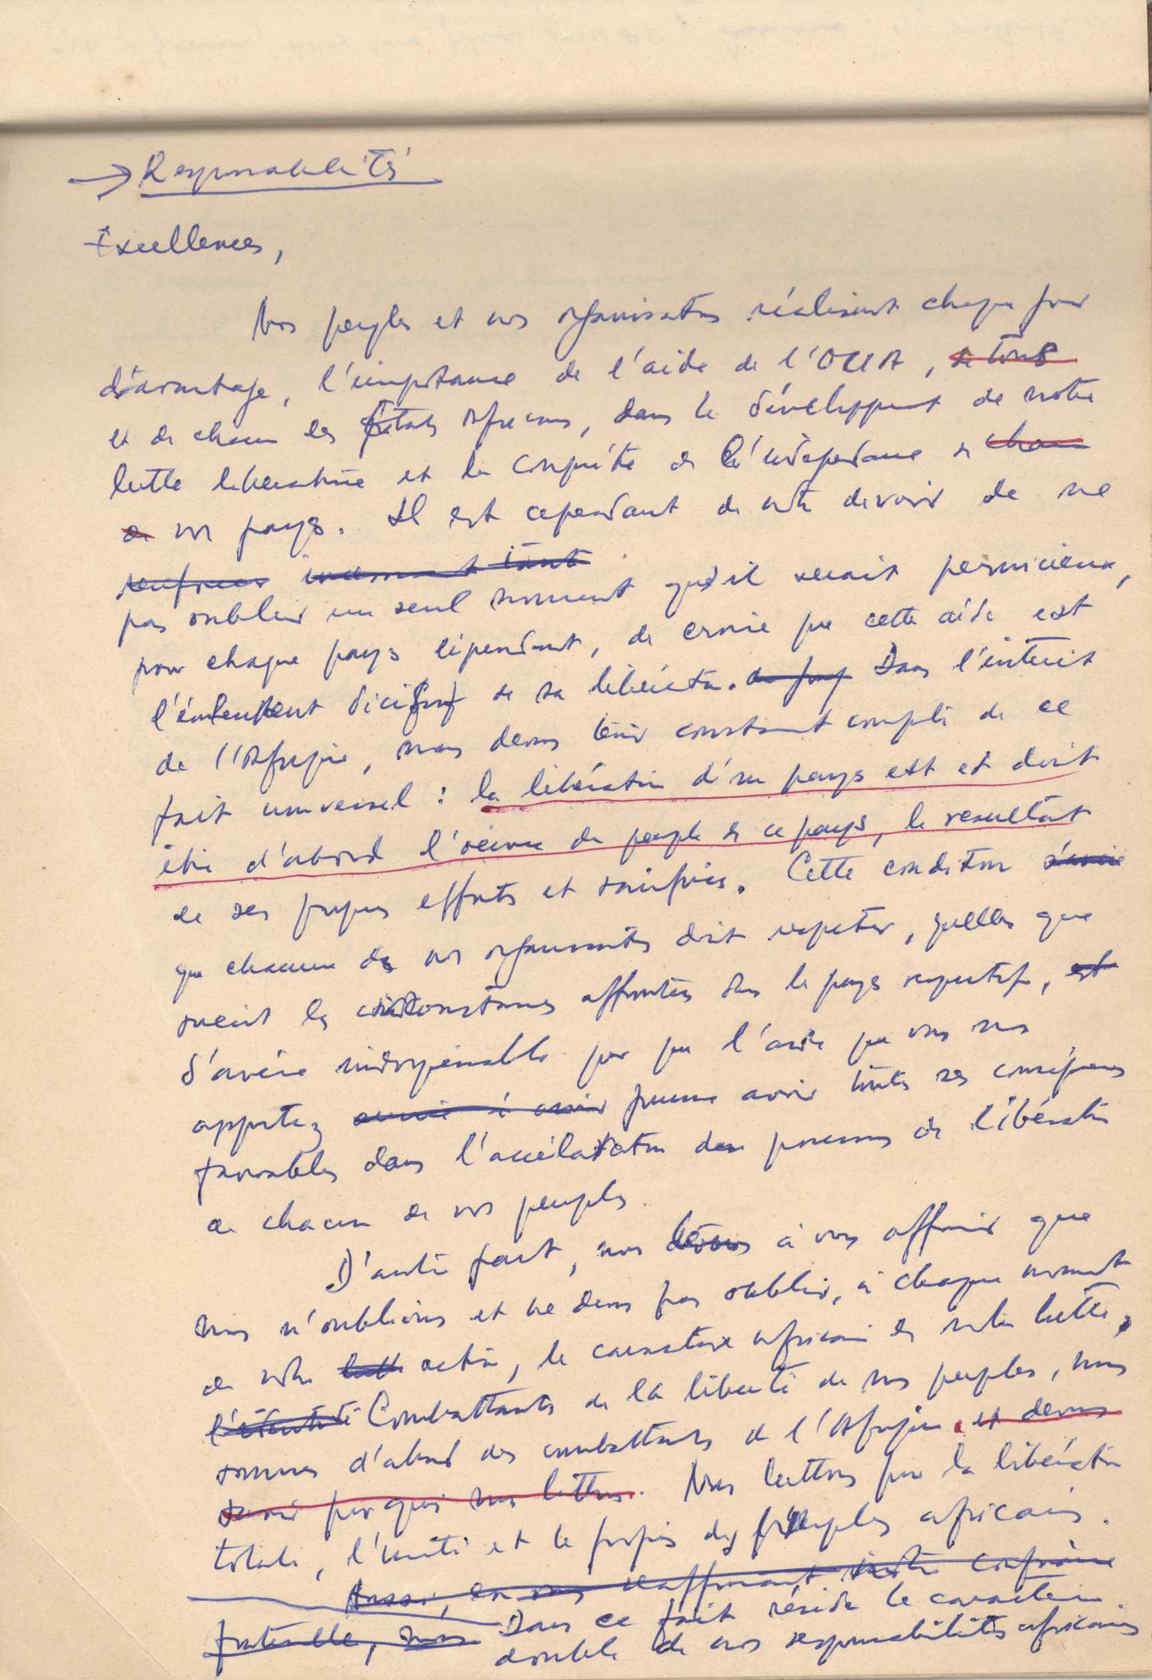 → Responsabilités
Excellences,
Nos peuples et nos organisations réalisent chaque jour
d'avantage, l'importance de l'aide de l'OUA, de tous
et de chacun des États Africains, dans le développement de notre
lutte libératrice et la conquête de l'indépendance de chacun
de nos pays. Il est cependant de notre devoir de ne
pas oublier un seul moment qu'il serait pernicieux,
pour chaque pays dépendant, de croire que cette aide est
l'élément décisif de sa libération. Dans l'intérêt
de l'Afrique, nous devons tenir constamment compte de ce
fait universel : la libération d'un pays est et doit
être d'abord l'oeuvre du peuple de ce pays, le resultat
de ses propres efforts et sacrifices. Cette condition
que chacune de nos organisations doit respecter, quelles que
soient les circonstances affrontées dans le pays respectif, est
s'avère indispensable pour que l'aide que vous nous
apportez puisse avoir toutes ses conséquences
favorables dans l'accélération du processus de libération
de chacun de nos peuples.
D'autre part, nous devons à vous affirmer que
nous n'oublions et ne devons pas oublier, à chaque moment
de notre lutte action, le caractère africain de notre lutte,
l'identité Combattants de la liberté de nos peuples, nous
sommes d'abord des combattants de l'Afrique. et devons
savoir pourquoi nous luttons. Nous luttons pour la libération
totale, l'unité et le progrès des peuples africains.
Aussi, en vous réaffirmant notre confiance
fraternelle, nous Dans ce fait réside le caractère
double de nos responsabilités africaines